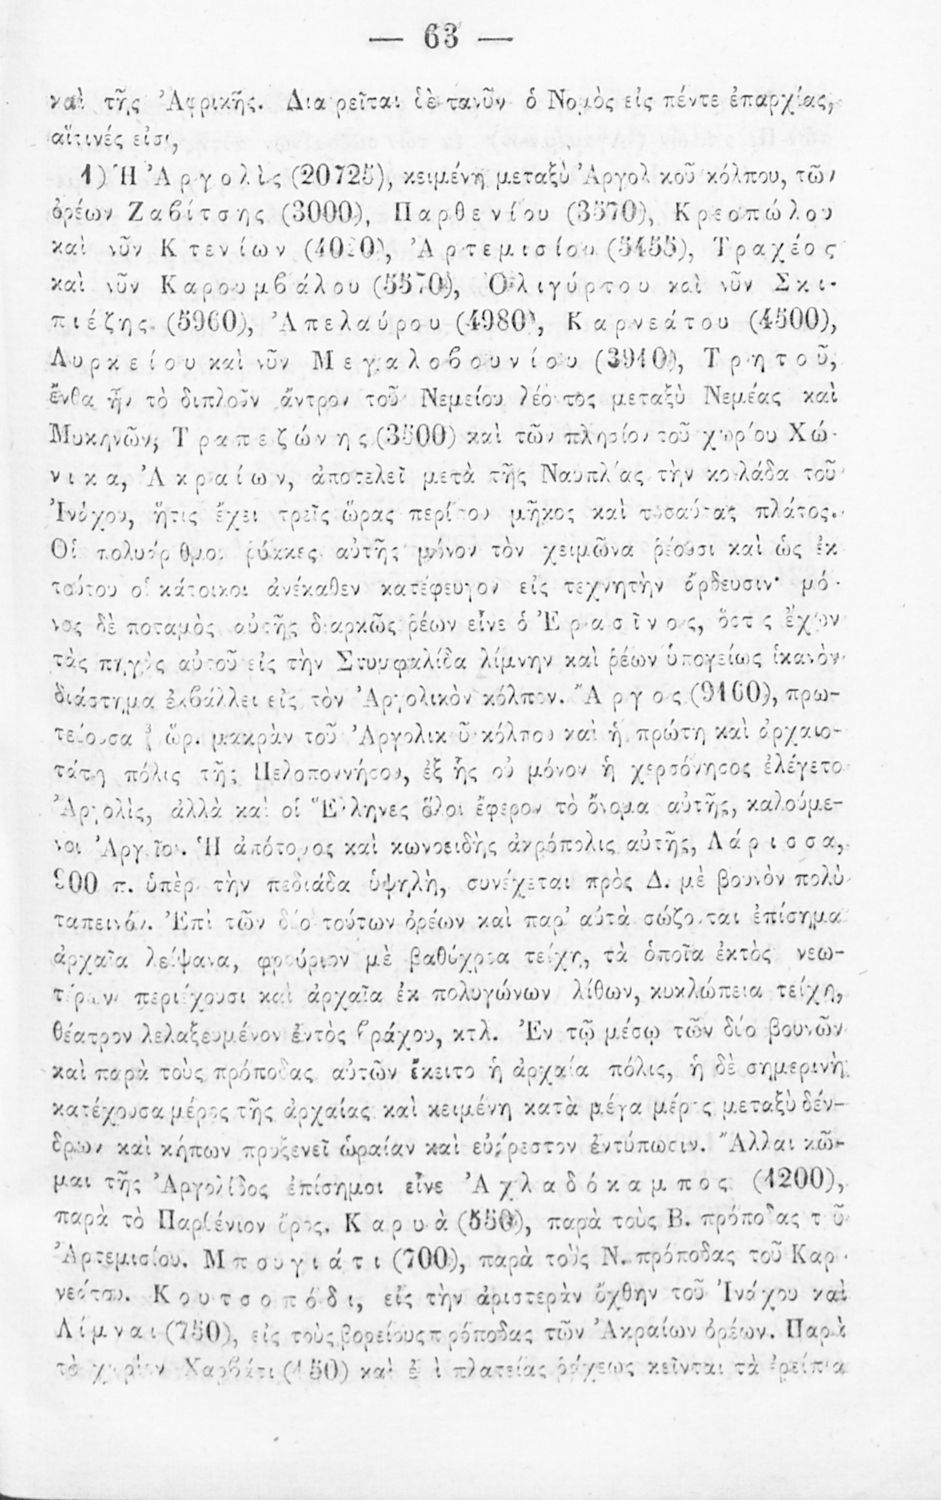 — 63 —
καὶ τῆς Ἀφρικῆς. Διαιρεῖται δὲ τανῦν ὁ Νομὸς εἰς πέντε ἐπαρχίας,
αἵτινές εἰσι,
1) Ἡ Ἀργολὶς (20725), κειμένη μεταξὺ Ἀργολικοῦ κόλπου, τῶν
ὀρέων Ζαβίτσης (3000), Παρθενίου (3570), Κρεοπώλου
καὶ νῦν Κτενίων Ἀρτεμισίου (5455), Τραχέος
καὶ νῦν Καρουμβάλου (5570), Ὀλιγύρτου καὶ νῦν Σκι-
πιέζης (5960), Ἀπελαύρου (4980), Καρνεάτου (4500),
Λυρκείου καὶ νῦν Μεγαλοβουνίου (3910), Τρητοῦ,
ἔνθα ἦν τὸ διπλοῦν ἄντρον τοῦ Νεμείου λέοντος μεταξὺ Νεμέας καὶ
Μυκηνῶν, Τραπεζώνης (3500) καὶ τῶν πλησίον τοῦ χωρίου Χώ-
νικα, Ἀκραίων, ἀποτελεῖ μετὰ τῆς Ναυπλίας τὴν κοιλάδα τοῦ
Ἰνάχου, ἥτις ἔχει τρεῖς ὥρας περίπου μῆκος καὶ τοσαύτας πλάτος.
Οἱ πολυάριθμοι ῥύακες αὐτῆς μόνον τὸν χειμῶνα ῥέουσι καὶ ὡς ἐκ
τούτου οἱ κάτοικοι ἀνέκαθεν κατέφευγον εἰς τεχνητὴν ἄρδευσιν· μό-
νος δὲ ποταμὸς αὐτῆς διαρκῶς ῥέων εἶνε ὁ Ἐρασῖνος, ὅστις ἔχων
τὰς πηγὰς αὐτοῦ εἰς τὴν Στυμφαλίδα λίμνην καὶ ῥέων ὑπογείως ἱκανὸν
διάστημα ἐκβάλλει εἰς τὸν Ἀργολικὸν κόλπον. Ἄργος (9160), πρω-
τεύουσα ὥρ. μακρὰν τοῦ Ἀργολικοῦ κόλπου καὶ ἡ πρώτη καὶ ἀρχαιο-
τάτη πόλις τῆς Πελοποννήσου, ἐξ ἧς οὐ μόνον ἡ χερσόνησος ἐλέγετο
Ἀργολὶς, ἀλλὰ καὶ οἱ Ἕλληνες ὅλοι ἔφερον τὸ ὄνομα αὐτῆς, καλούμε-
νοι Ἀργεῖοι. Ἡ ἀπότομος καὶ κωνοειδὴς ἀκρόπολις αὐτῆς, Λάρισσα,
900 π. ὑπὲρ τὴν πεδιάδα ὑψηλὴ, συνέχεται πρὸς Δ. μὲ βουνὸν πολὺ
ταπεινόν. Ἐπὶ τῶν δύο τούτων ὀρέων καὶ παρ' αὐτὰ σώζονται ἐπίσημα
ἀρχαῖα λείψανα, φρούριον μὲ βαθύχροα τείχη, τὰ ὁποῖα ἐκτὸς νεω-
τέρων περιέχουσι καὶ ἀρχαῖα ἐκ πολυγώνων λίθων, κυκλώπεια τείχη,
θέατρον λελαξευμένον ἐντὸς βράχου, κτλ. Ἐν τῷ μέσῳ τῶν δύο βουνῶν
καὶ παρὰ τοὺς πρόποδας αὐτῶν ἔκειτο ἡ ἀρχαία πόλις, ἡ δὲ σημερινὴ
κατέχουσα μέρος τῆς ἀρχαίας καὶ κειμένη κατὰ μέγα μέρος μεταξὺ δέν-
δρων καὶ κήπων προξενεῖ ὡραίαν καὶ εὐάρεστον ἐντύπωσιν. Ἄλλαι κῶ-
μαι τῆς Ἀργολίδος ἐπίσημοι εἶνε Ἀχλαδόκαμπος (1200),
παρὰ τὸ Παρθένιον ὄρος. Καρυὰ (550), παρὰ τοὺς Β. πρόποδας τοῦ
Ἀρτεμισίου. Μπουγιάτι (700), παρὰ τοὺς Ν. πρόποδας τοῦ Καρ-
νεάτου. Κουτσοπόδι, εἰς τὴν ἀριστερὰν ὄχθην τοῦ Ἰνάχου καὶ
Λίμναι (750), εἰς τοὺς βορείους πρόποδας τῶν Ἀκραίων ὀρέων. Παρὰ
τὸ χωρίον Χαρβάτι (150) καὶ ἐπὶ πλατείας ῥάχεως κεῖνται τὰ ἐρείπια